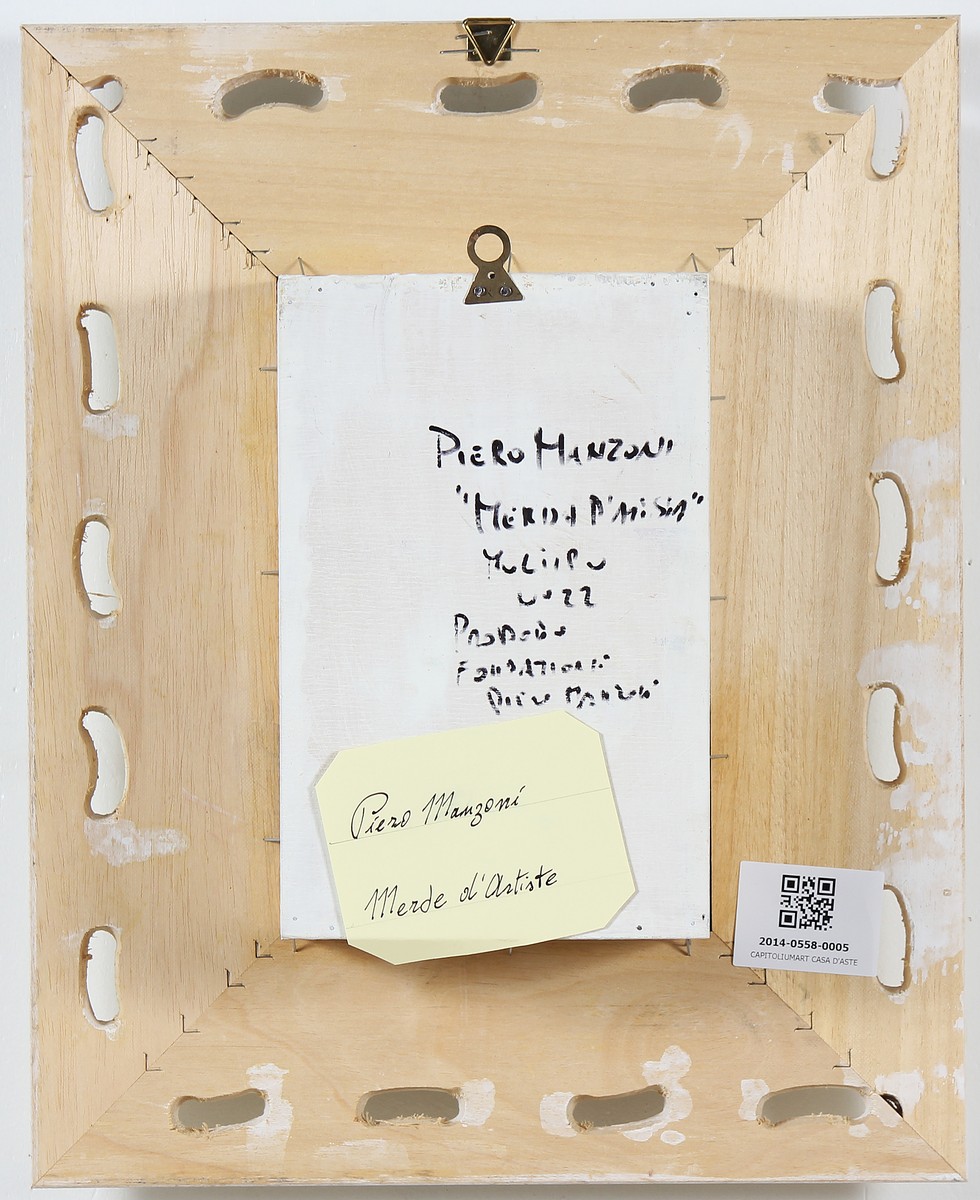 PIERO MANZONI
"MERDA D'
N° 22
FONDAZIONE
PIERO MANZONI
Piero Manzoni
Merde d'Artiste
2014-0558-0005
CAPITOLIUMART CASA D'ASTE